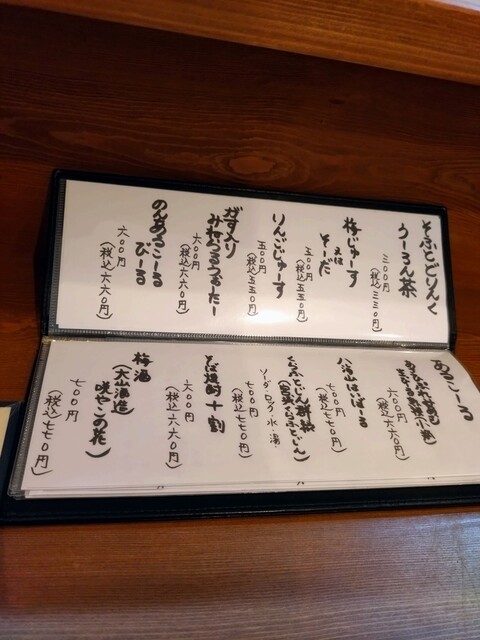 そふとどりんく
うーろん茶
三〇〇円
(税込三三〇円)
梅じゅーす
又は
そーだ
五〇〇円
(税込五五〇円)
りんごじゅーす
五〇〇円
(税込五五〇円)
ガす入り
みねらるうぉーたー
六〇〇円
(税込六六〇円)
のんあるこーる
びーる
六〇〇円
(税込六六〇円)
あるこーる
六〇〇円
(税込六六〇円)
八海山はいぼーる
七〇〇円
(税込七七〇円)
くらふとじん
ソーダ・ロック・水・湯
七〇〇円
(税込七七〇円)
そば焼酎十割
六〇〇円
(税込六六〇円)
梅酒
(大山酒造
咲やこの花)
七〇〇円
(税込七七〇円)